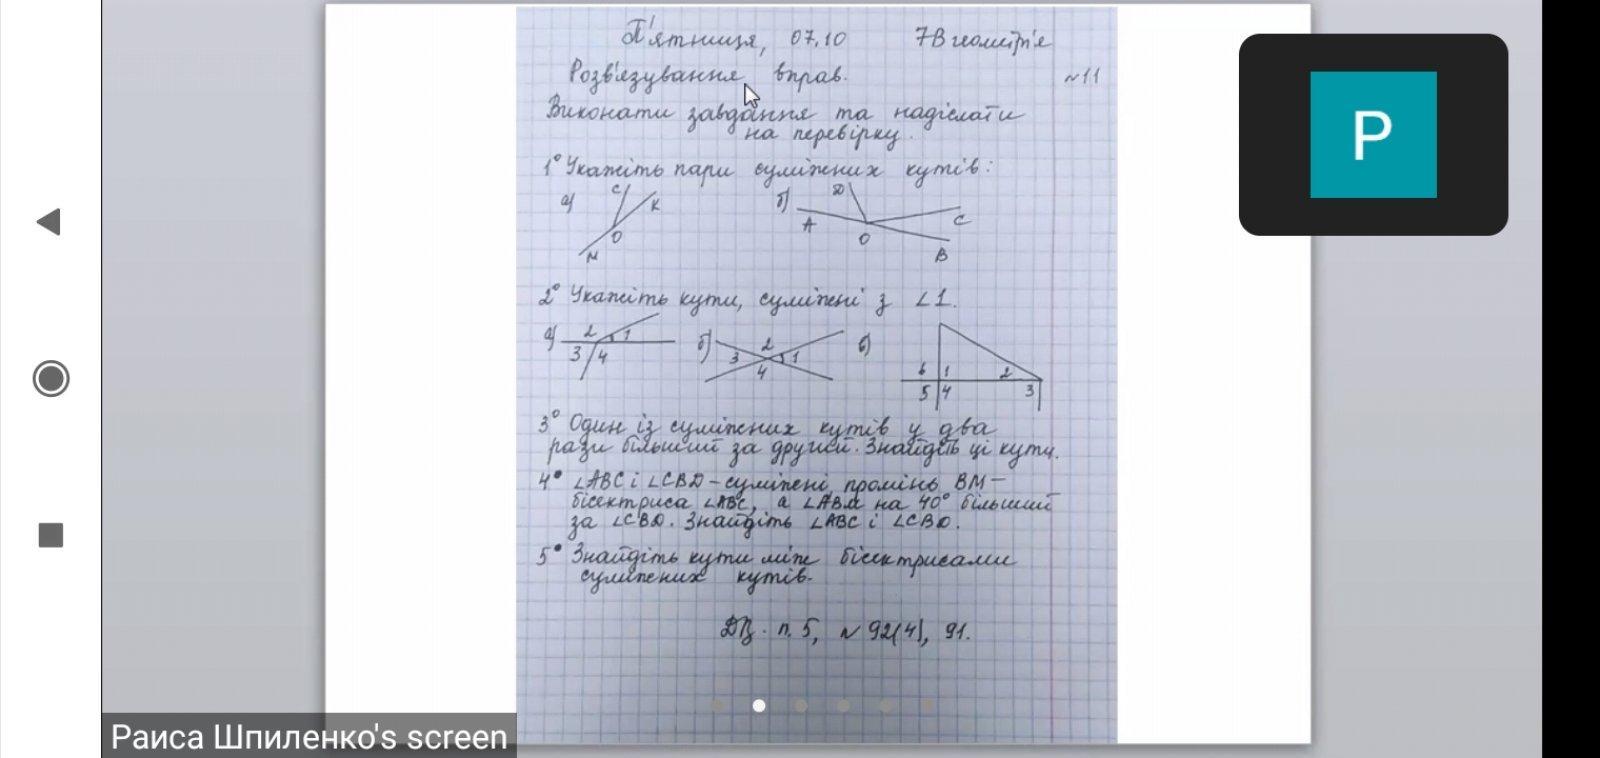 П'ятниця, 07.10 7В геометр'я
Розв'язування вправ. №11
Виконати завдання та надіслати
на перевірку.
1° Укажіть пари суміжних кутів:
а) C K O M
б) D A O C B
2° Укажіть кути, суміжні з ∠1.
а) 2 1 3 4
б) 2 3 1 4
в) 6 1 2 5 4 3
3° Один із суміжних кутів у два
рази більший за другий. Знайдіть ці кути.
4• ∠ABC і ∠CBD – суміжні, промінь BM –
бісектриса ∠ABC, а ∠ABM на 40° більший
за ∠CBD. Знайдіть ∠ABC і ∠CBD.
5• Знайдіть кути між бісектрисами
суміжних кутів.
ДЗ. п. 5, № 92(4), 91.
P
Раиса Шпиленко's screen